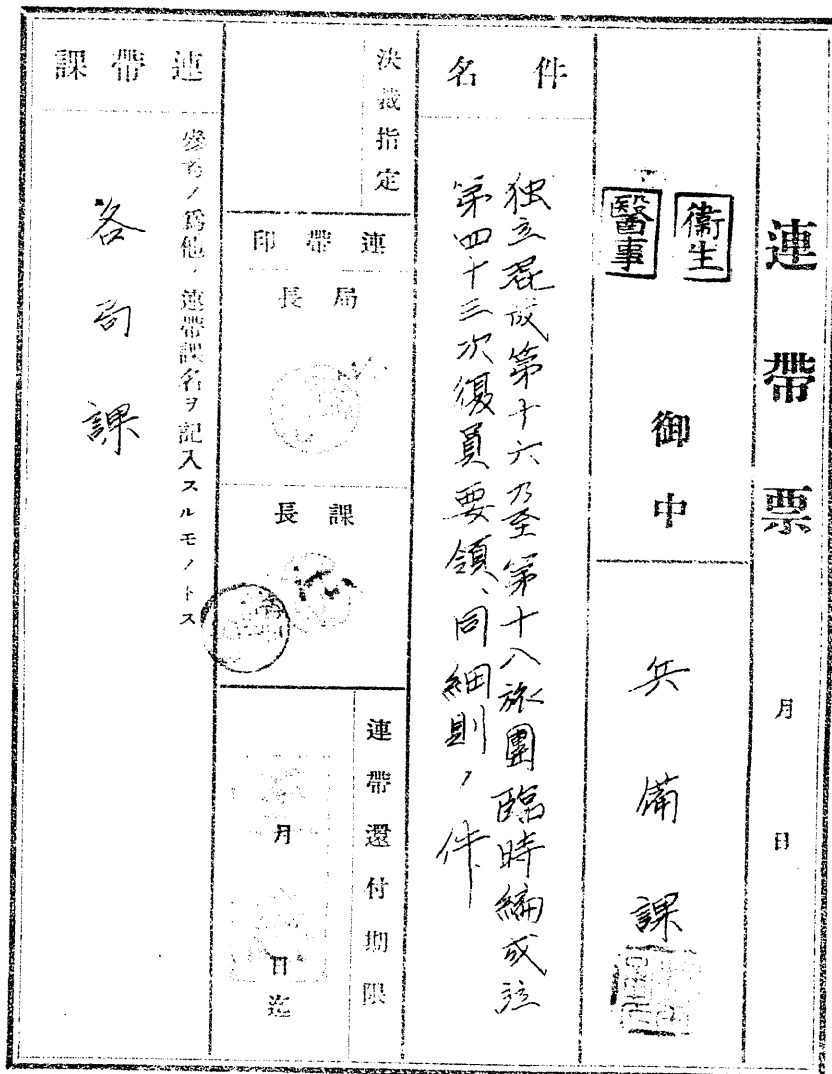 連帶票
月 日
衞生
醫事
御中
兵備課
件名
独立混成第十六乃至第十八旅團臨時編成竝
第四十三次復員要領、同細則ノ件
決裁指定
連帶印
局長
課長
連帶還付期限
月 日迄
連帶課
參考ノ爲他ノ連帶課名ヲ記入スルモノトス
各局課